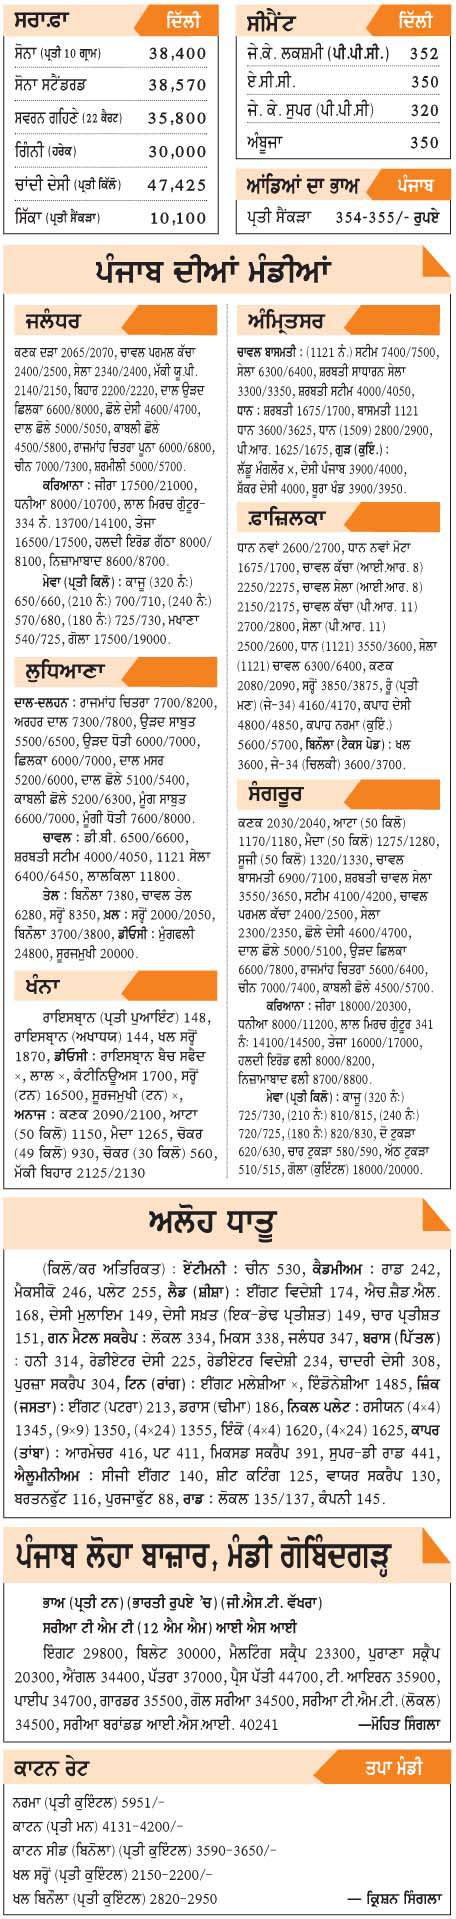 ਸਰਾ.ਫ਼ਾ ਦਿੱਲੀ
ਸੋਨਾ (ਪ੍ਰਤੀ 10 ਗ੍ਰਾਮ) 38,400
ਸੋਨਾ ਸਟੈਂਡਰਡ 38,570
ਸਵਰਨ ਗਹਿਣੇ (22 ਕੈਰਟ) 35,800
ਗਿੰਨੀ (ਹਰੇਕ) 30,000
ਚਾਂਦੀ ਦੇਸੀ (ਪ੍ਰਤੀ ਕਿੱਲੋ) 47,425
ਸਿੱਕਾ (ਪ੍ਰਤੀ ਸੈਂਕੜਾ) 10,100
ਸੀਮੈਂਟ ਦਿੱਲੀ
ਜੇ.ਕੇ. ਲਕਸ਼ਮੀ (ਪੀ.ਪੀ.ਸੀ.) 352
ਏ.ਸੀ.ਸੀ. 350
ਜੇ. ਕੇ. ਸੁਪਰ (ਪੀ.ਪੀ.ਸੀ) 320
ਅੰਬੂਜਾ 350
ਆਂਡਿਆਂ ਦਾ ਭਾਅ ਪੰਜਾਬ
ਪ੍ਰਤੀ ਸੈਂਕੜਾ 354-355/- ਰੁਪਏ
ਪੰਜਾਬ ਦੀਆਂ ਮੰਡੀਆਂ
ਜਲੰਧਰ
ਕਣਕ ਦੜਾ 2065/2070, ਚਾਵਲ ਪਰਮਲ ਕੱਚਾ
2400/2500, ਸੇਲਾ 2340/2400, ਮੱਕੀ ਯੂ.ਪੀ.
2140/2150, ਬਿਹਾਰ 2200/2220, ਦਾਲ ਉੜਦ
ਛਿਲਕਾ 6600/8000, ਛੋਲੇ ਦੇਸੀ 4600/4700,
ਦਾਲ ਛੋਲੇ 5000/5050, ਕਾਬਲੀ ਛੋਲੇ
4500/5800, ਰਾਜਮਾਂਹ ਚਿਤਰਾ ਪੂਨਾ 6000/6800,
ਚੀਨ 7000/7300, ਸ਼ਰਮੀਲੀ 5000/5700.
ਕਰਿਆਨਾ : ਜੀਰਾ 17500/21000,
ਧਨੀਆ 8000/10700, ਲਾਲ ਮਿਰਚ ਗੁੰਟੂਰ-
334 ਨੰ. 13700/14100, ਤੇਜਾ
16500/17500, ਹਲਦੀ ਇਰੋਡ ਗੱਠਾ 8000/
8100, ਨਿਜ਼ਾਮਾਬਾਦ 8600/8700.
ਮੇਵਾ (ਪ੍ਰਤੀ ਕਿਲੋ) : ਕਾਜੂ (320 ਨੰ:)
650/660, (210 ਨੰ:) 700/710, (240 ਨੰ:)
570/680, (180 ਨੰ:) 725/730, ਮਖਾਣਾ
540/725, ਗੋਲਾ 17500/19000.
ਲੁਧਿਆਣਾ
ਦਾਲ-ਦਲਹਨ : ਰਾਜਮਾਂਹ ਚਿਤਰਾ 7700/8200,
ਅਰਹਰ ਦਾਲ 7300/7800, ਉੜਦ ਸਾਬੁਤ
5500/6500, ਉੜਦ ਧੋਤੀ 6000/7000,
ਛਿਲਕਾ 6000/7000, ਦਾਲ ਮਸਰ
5200/6000, ਦਾਲ ਛੋਲੇ 5100/5400,
ਕਾਬਲੀ ਛੋਲੇ 5200/6300, ਮੂੰਗ ਸਾਬੁਤ
6600/7000, ਮੂੰਗੀ ਧੋਤੀ 7600/8000.
ਚਾਵਲ : ਡੀ.ਬੀ. 6500/6600,
ਸ਼ਰਬਤੀ ਸਟੀਮ 4000/4050, 1121 ਸੇਲਾ
6400/6450, ਲਾਲਕਿਲਾ 11800.
ਤੇਲ : ਬਿਨੌਲਾ 7380, ਚਾਵਲ ਤੇਲ
6280, ਸਰ੍ਹੋਂ 8350, ਖ਼ਲ : ਸਰ੍ਹੋਂ 2000/2050,
ਬਿਨੌਲਾ 3700/3800, ਡੀਓਸੀ : ਮੁੰਗਫਲੀ
24800, ਸੂਰਜਮੁਖੀ 20000.
ਖੰਨਾ
ਰਾਇਸਬ੍ਰਾਨ (ਪ੍ਰਤੀ ਪੁਆਇੰਟ) 148,
ਰਾਇਸਬ੍ਰਾਨ (ਅਖਾਧਯ) 144, ਖਲ ਸਰ੍ਹੋਂ
1870, ਡੀਓਸੀ : ਰਾਇਸਬ੍ਰਾਨ ਬੈਚ ਸਫੈਦ
×, ਲਾਲ ×, ਕੰਟੀਨਿਊਅਸ 1700, ਸਰ੍ਹੋਂ
(ਟਨ) 16500, ਸੂਰਜਮੁਖੀ (ਟਨ) ×,
ਅਨਾਜ : ਕਣਕ 2090/2100, ਆਟਾ
(50 ਕਿਲੋ) 1150, ਮੈਦਾ 1265, ਚੋਕਰ
(49 ਕਿਲੋ) 930, ਚੋਕਰ (30 ਕਿਲੋ) 560,
ਮੱਕੀ ਬਿਹਾਰ 2125/2130
ਅੰਮ੍ਰਿਤਸਰ
ਚਾਵਲ ਬਾਸਮਤੀ : (1121 ਨੰ.) ਸਟੀਮ 7400/7500,
ਸੇਲਾ 6300/6400, ਸ਼ਰਬਤੀ ਸਾਧਾਰਨ ਸੇਲਾ
3300/3350, ਸ਼ਰਬਤੀ ਸਟੀਮ 4000/4050,
ਧਾਨ : ਸ਼ਰਬਤੀ 1675/1700, ਬਾਸਮਤੀ 1121
ਧਾਨ 3600/3625, ਧਾਨ (1509) 2800/2900,
ਪੀ.ਆਰ. 1625/1675, ਗੁੜ (ਕੁਇੰ.) :
ਲੱਡੂ ਮੰਗਲੌਰ ×, ਦੇਸੀ ਪੰਜਾਬ 3900/4000,
ਸ਼ੱਕਰ ਦੇਸੀ 4000, ਬੂਰਾ ਖੰਡ 3900/3950.
ਫ਼ਾਜ਼ਿਲਕਾ
ਧਾਨ ਨਵਾਂ 2600/2700, ਧਾਨ ਨਵਾਂ ਮੋਟਾ
1675/1700, ਚਾਵਲ ਕੱਚਾ (ਆਈ.ਆਰ. 8)
2250/2275, ਚਾਵਲ ਸੇਲਾ (ਆਈ.ਆਰ. 8)
2150/2175, ਚਾਵਲ ਕੱਚਾ (ਪੀ.ਆਰ. 11)
2700/2800, ਸੇਲਾ (ਪੀ.ਆਰ. 11)
2500/2600, ਧਾਨ (1121) 3550/3600, ਸੇਲਾ
(1121) ਚਾਵਲ 6300/6400, ਕਣਕ
2080/2090, ਸਰ੍ਹੋਂ 3850/3875, ਰੂੰ (ਪ੍ਰਤੀ
ਮਣ) (ਜੇ-34) 4160/4170, ਕਪਾਹ ਦੇਸੀ
4800/4850, ਕਪਾਹ ਨਰਮਾ (ਕੁਇੰ.)
5600/5700, ਬਿਨੌਲਾ (ਟੈਕਸ ਪੇਡ) : ਖਲ
3600, ਜੇ-34 (ਚਿਲਕੀ) 3600/3700.
ਸੰਗਰੂਰ
ਕਣਕ 2030/2040, ਆਟਾ (50 ਕਿਲੋ)
1170/1180, ਮੈਦਾ (50 ਕਿਲੋ) 1275/1280,
ਸੂਜੀ (50 ਕਿਲੋ) 1320/1330, ਚਾਵਲ
ਬਾਸਮਤੀ 6900/7100, ਸ਼ਰਬਤੀ ਚਾਵਲ ਸੇਲਾ
3550/3650, ਸਟੀਮ 4100/4200, ਚਾਵਲ
ਪਰਮਲ ਕੱਚਾ 2400/2500, ਸੇਲਾ
2300/2350, ਛੋਲੇ ਦੇਸੀ 4600/4700,
ਦਾਲ ਛੋਲੇ 5000/5100, ਉੜਦ ਛਿਲਕਾ
6600/7800, ਰਾਜਮਾਂਹ ਚਿਤਰਾ 5600/6400,
ਚੀਨ 7000/7400, ਕਾਬਲੀ ਛੋਲੇ 4500/5700.
ਕਰਿਆਨਾ : ਜੀਰਾ 18000/20300,
ਧਨੀਆ 8000/11200, ਲਾਲ ਮਿਰਚ ਗੁੰਟੂਰ 341
ਨੰ: 14100/14500, ਤੇਜਾ 16000/17000,
ਹਲਦੀ ਇਰੋਡ ਫਲੀ 8000/8200,
ਨਿਜ਼ਾਮਾਬਾਦ ਫਲੀ 8700/8800.
ਮੇਵਾ (ਪ੍ਰਤੀ ਕਿਲੋ) : ਕਾਜੂ (320 ਨੰ:)
725/730, (210 ਨੰ:) 810/815, (240 ਨੰ:)
720/725, (180 ਨੰ:) 820/830, ਦੋ ਟੁਕੜਾ
620/630, ਚਾਰ ਟੁਕੜਾ 580/590, ਅੱਠ ਟੁਕੜਾ
510/515, ਗੋਲਾ (ਕੁਇੰਟਲ) 18000/20000.
ਅਲੋਹ ਧਾਤੂ
(ਕਿਲੋ/ਕਰ ਅਤਿਰਿਕਤ) : ਏਂਟੀਮਨੀ : ਚੀਨ 530, ਕੈਡਮੀਅਮ : ਰਾਡ 242,
ਮੈਕਸੀਕੋ 246, ਪਲੇਟ 255, ਲੈਡ (ਸ਼ੀਸ਼ਾ) : ਈਂਗਟ ਵਿਦੇਸ਼ੀ 174, ਐਚ.ਜ਼ੈਡ.ਐਲ.
168, ਦੇਸੀ ਮੁਲਾਇਮ 149, ਦੇਸੀ ਸਖ਼ਤ (ਇਕ-ਡੇਢ ਪ੍ਰਤੀਸ਼ਤ) 149, ਚਾਰ ਪ੍ਰਤੀਸ਼ਤ
151, ਗਨ ਮੈਟਲ ਸਕਰੈਪ : ਲੋਕਲ 334, ਮਿਕਸ 338, ਜਲੰਧਰ 347, ਬਰਾਸ (ਪਿੱਤਲ)
: ਹਨੀ 314, ਰੇਡੀਏਟਰ ਦੇਸੀ 225, ਰੇਡੀਏਟਰ ਵਿਦੇਸ਼ੀ 234, ਚਾਦਰੀ ਦੇਸੀ 308,
ਪੁਰਜ਼ਾ ਸਕਰੈਪ 304, ਟਿਨ (ਰਾਂਗ) : ਈਂਗਟ ਮਲੇਸ਼ੀਆ ×, ਇੰਡੋਨੇਸ਼ੀਆ 1485, ਜ਼ਿੰਕ
(ਜਸਤਾ) : ਈਂਗਟ (ਪਟਰਾ) 213, ਡਰਾਸ (ਢੀਮਾ) 186, ਨਿਕਲ ਪਲੇਟ : ਰਸੀਯਨ (4×4)
1345, (9×9) 1350, (4×24) 1355, ਇੰਕੋ (4×4) 1620, (4×24) 1625, ਕਾਪਰ
(ਤਾਂਬਾ) : ਆਰਮੇਚਰ 416, ਪਟ 411, ਮਿਕਸਡ ਸਕਰੈਪ 391, ਸੁਪਰ-ਡੀ ਰਾਡ 441,
ਐਲੂਮੀਨੀਅਮ : ਸੀਜੀ ਈਂਗਟ 140, ਸ਼ੀਟ ਕਟਿੰਗ 125, ਵਾਯਰ ਸਕਰੈਪ 130,
ਬਰਤਨਫੁੱਟ 116, ਪੁਰਜਾਫੁੱਟ 88, ਰਾਡ : ਲੋਕਲ 135/137, ਕੰਪਨੀ 145.
ਪੰਜਾਬ ਲੋਹਾ ਬਾਜ਼ਾਰ, ਮੰਡੀ ਗੋਬਿੰਦਗੜ੍ਹ
ਭਾਅ (ਪ੍ਰਤੀ ਟਨ) (ਭਾਰਤੀ ਰੁਪਏ 'ਚ) (ਜੀ.ਐਸ.ਟੀ. ਵੱਖਰਾ)
ਸਰੀਆ ਟੀ ਐਮ ਟੀ (12 ਐਮ ਐਮ) ਆਈ ਐਸ ਆਈ
ਇੰਗਟ 29800, ਬਿਲੇਟ 30000, ਮੈਲਟਿੰਗ ਸਕ੍ਰੈਪ 23300, ਪੁਰਾਣਾ ਸਕ੍ਰੈਪ
20300, ਐਂਗਲ 34400, ਪੱਤਰਾ 37000, ਪ੍ਰੈਸ ਪੱਤੀ 44700, ਟੀ. ਆਇਰਨ 35900,
ਪਾਈਪ 34700, ਗਾਰਡਰ 35500, ਗੋਲ ਸਰੀਆ 34500, ਸਰੀਆ ਟੀ.ਐਮ.ਟੀ. (ਲੋਕਲ)
34500, ਸਰੀਆ ਬਰਾਂਡਡ ਆਈ.ਐਸ.ਆਈ. 40241 —ਮੋਹਿਤ ਸਿੰਗਲਾ
ਕਾਟਨ ਰੇਟ ਤਪਾ ਮੰਡੀ
ਨਰਮਾ (ਪ੍ਰਤੀ ਕੁਇੰਟਲ) 5951/-
ਕਾਟਨ (ਪ੍ਰਤੀ ਮਨ) 4131-4200/-
ਕਾਟਨ ਸੀਡ (ਬਿਨੋਲਾ) (ਪ੍ਰਤੀ ਕੁਇੰਟਲ) 3590-3650/-
ਖਲ ਸਰ੍ਹੋਂ (ਪ੍ਰਤੀ ਕੁਇੰਟਲ) 2150-2200/-
ਖਲ ਬਿਨੌਲਾ (ਪ੍ਰਤੀ ਕੁਇੰਟਲ) 2820-2950 — ਕ੍ਰਿਸ਼ਨ ਸਿੰਗਲਾ